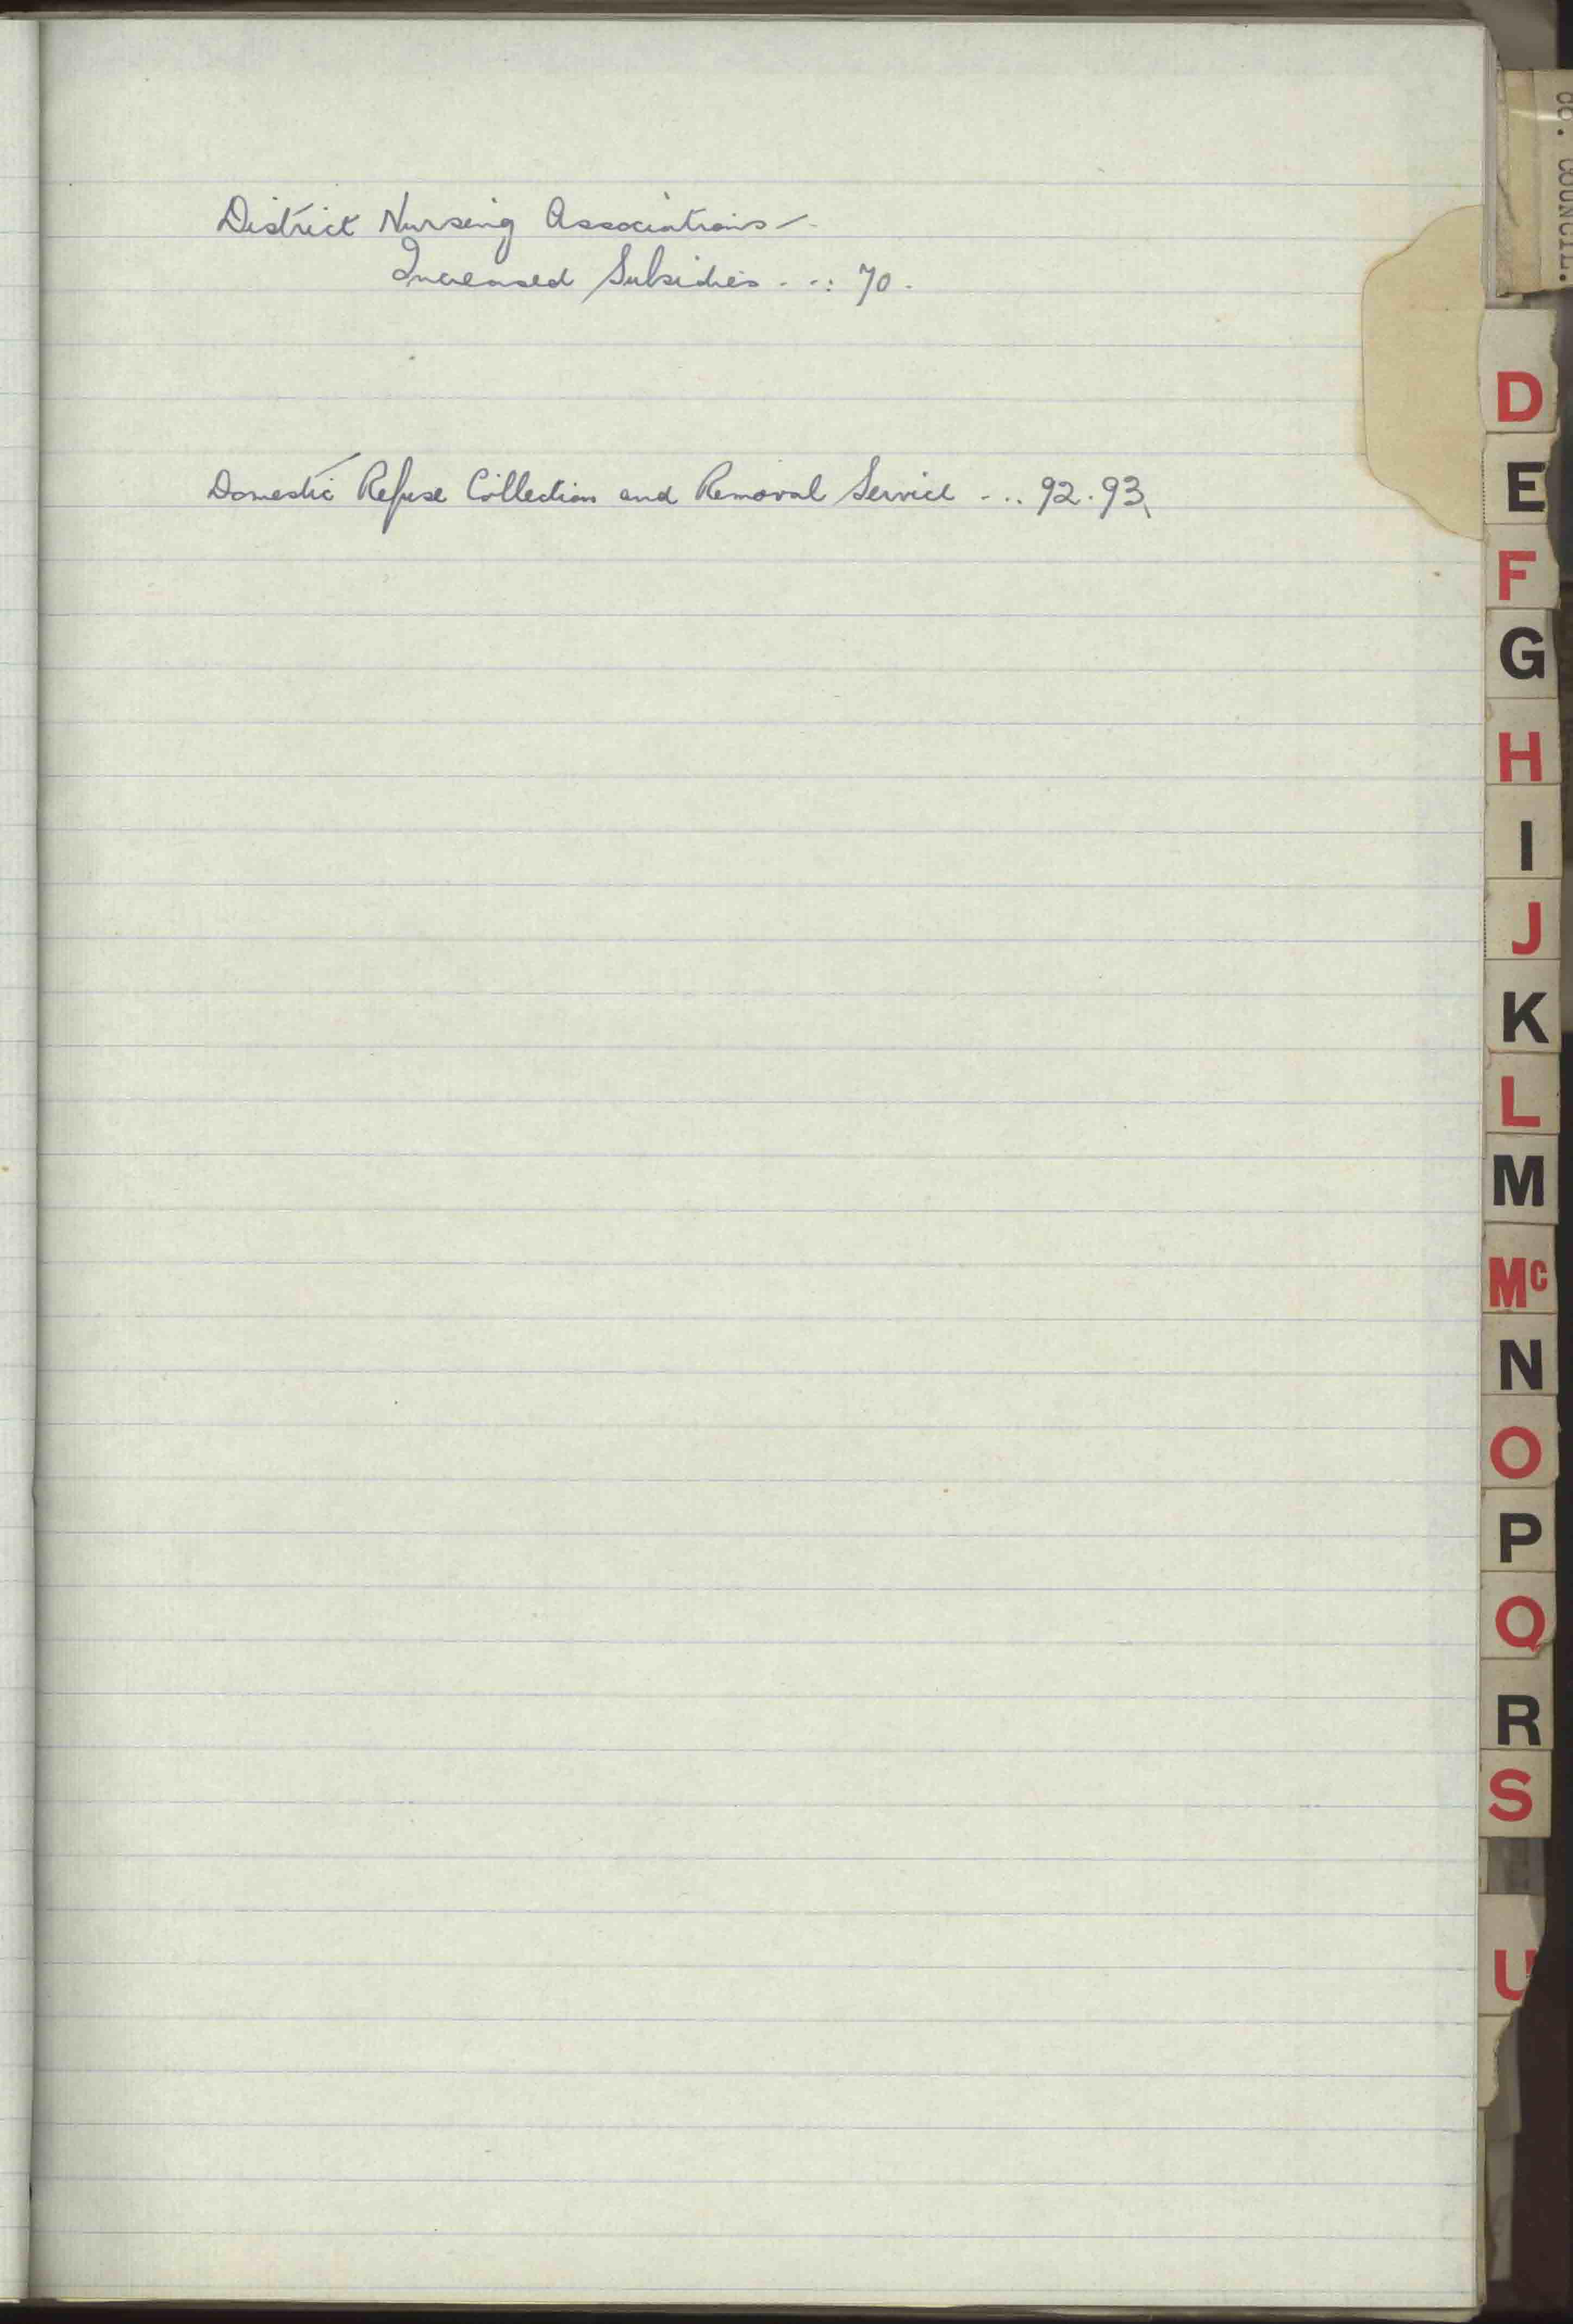 CO. COUNCIL.
District Nursing Associations –
Increased Subsidies . . : 70.
Domestic Refuse Collection and Removal Service ... 92.93,
D
E
F
G
H
I
J
K
L
M
Mc
N
O
P
Q
R
S
U